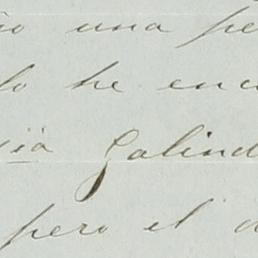 no una pe
lo he enc
ia Galind
pero el d